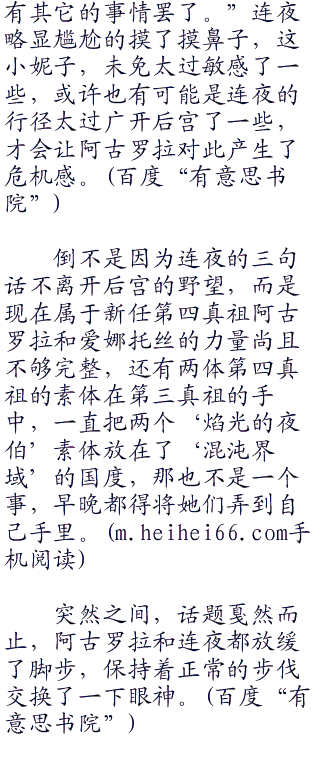 有其它的事情罢了。”连夜
略显尴尬的摸了摸鼻子，这
小妮子，未免太过敏感了一
些，或许也有可能是连夜的
行径太过广开后宫了一些，
才会让阿古罗拉对此产生了
危机感。(百度“有意思书
院”)
倒不是因为连夜的三句
话不离开后宫的野望，而是
现在属于新任第四真祖阿古
罗拉和爱娜托丝的力量尚且
不够完整，还有两体第四真
祖的素体在第三真祖的手
中，一直把两个‘焰光的夜
伯’素体放在了‘混沌界
域’的国度，那也不是一个
事，早晚都得将她们弄到自
己手里。(m.heihei66.com手
机阅读)
突然之间，话题戛然而
止，阿古罗拉和连夜都放缓
了脚步，保持着正常的步伐
交换了一下眼神。(百度“有
意思书院”)